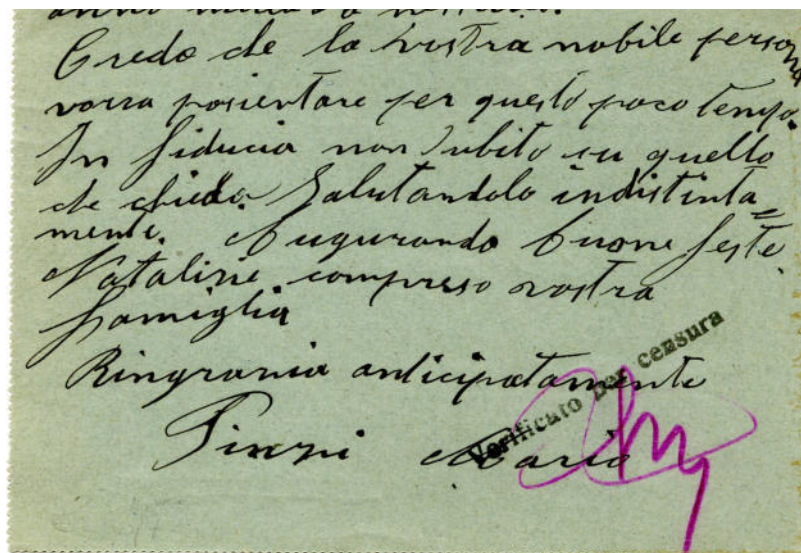 Credo che la vostra nobile persona
vorra pasientare per questo poco tempo.
In fiducia non dubito su quello
che chiedo. Salutandolo indistinta=
mente. Augurando buone feste
Natalizie compreso vostra
famiglia
Ringrazia anticipatamente
Verificato per censura
Pinzi Mario